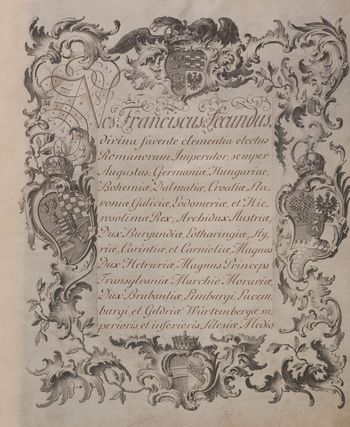 Nos Franciscus Secundus,
divina favente clementia electus
Romanorum Imperator, semper
Augustus, Germaniæ, Hungariæ,
Bohemiæ Dalmatiæ, Croatiæ Sla,
voniæ Galiciæ, Lodomeriæ, et Hie,
rosolimæ Rex, Archidux Austriæ,
Dux Burgundiæ, Lotharingiæ, Sty,
riæ, Carintiæ, et Carnioliæ, Magnus
Dux Hetruriæ, Magnus Princeps
Transylvaniæ Marchio Moraviæ
Dux Brabantiæ Limburgi Lucem,
burgi, et Geldriæ Würtembergæ, su,
perioris, et inferioris, Silesiæ, Medio